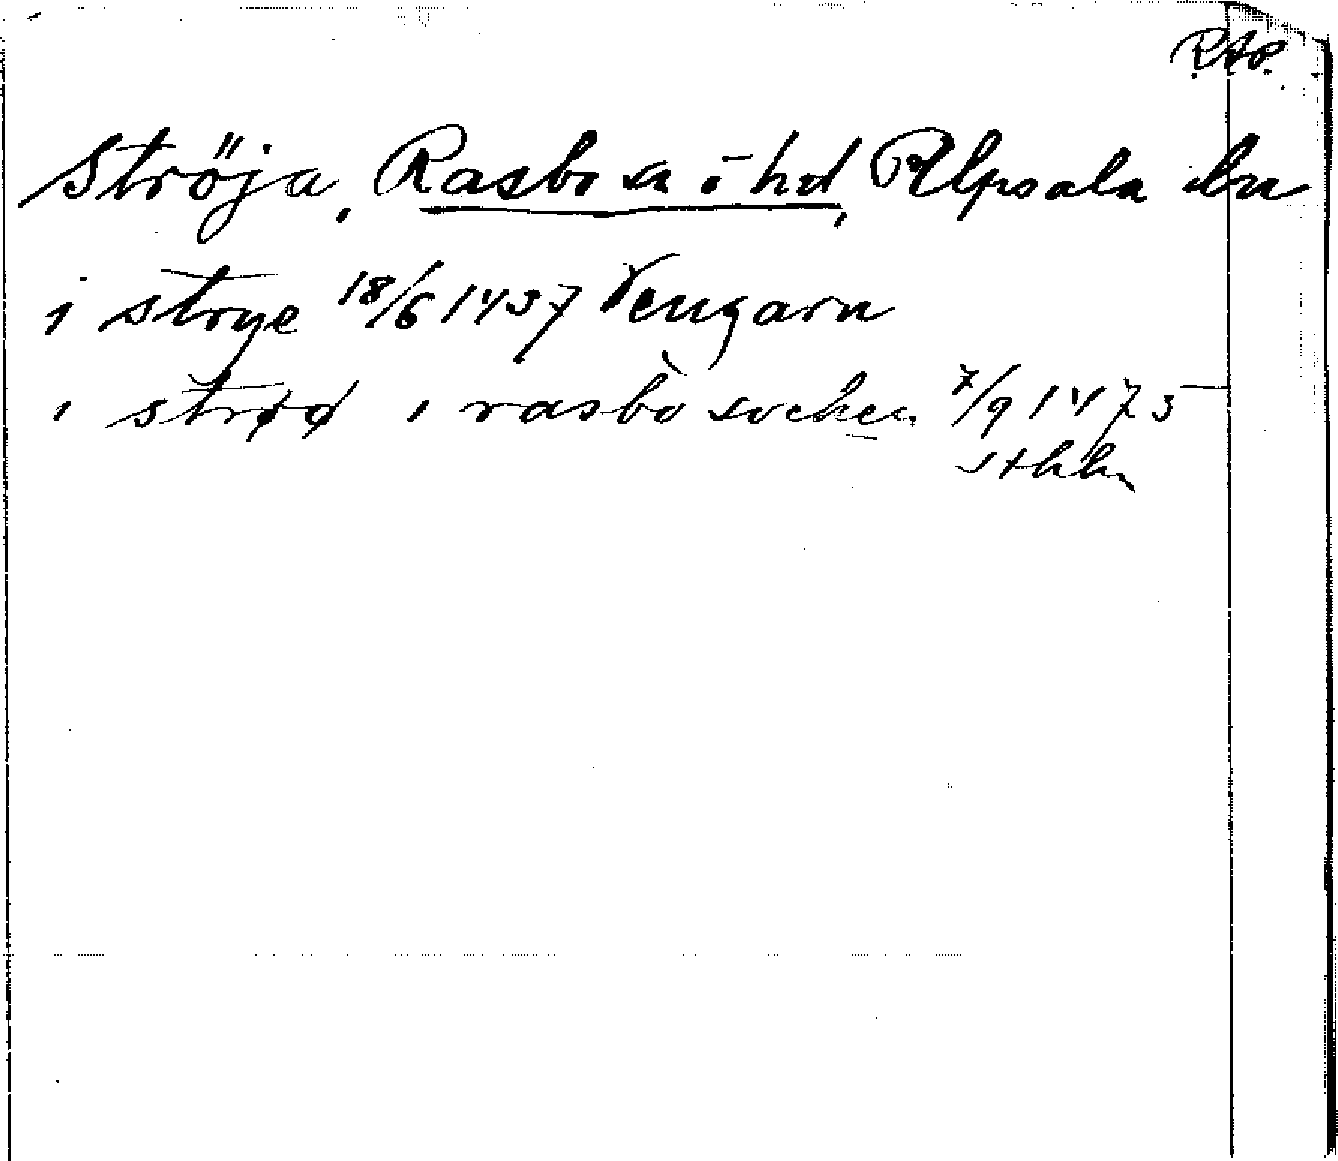 RAP.
Ströja, Rasbo sn o hd, Upsala län
i strye 18/6 1437 Vengarn
i strøø i rasbo sochen 7/9 1475
Sthlm